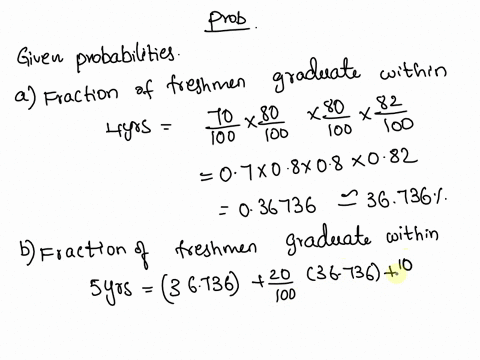 Prob
Given probabilities.
a) Fraction of freshmen graduate within
4yrs = 70/100 × 80/100 × 80/100 × 82/100
= 0.7 × 0.8 × 0.8 × 0.82
= 0.36736 ≃ 36.736%
b) Fraction of freshmen graduate within
5yrs = (36.736) + 20/100 (36.736) + 10